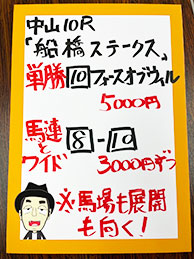 中山10R
「船橋ステークス」
単勝10フォースオブウィル
5000円
馬連とワイド 8-10
3000円ずつ
※馬場も展開
も向く!